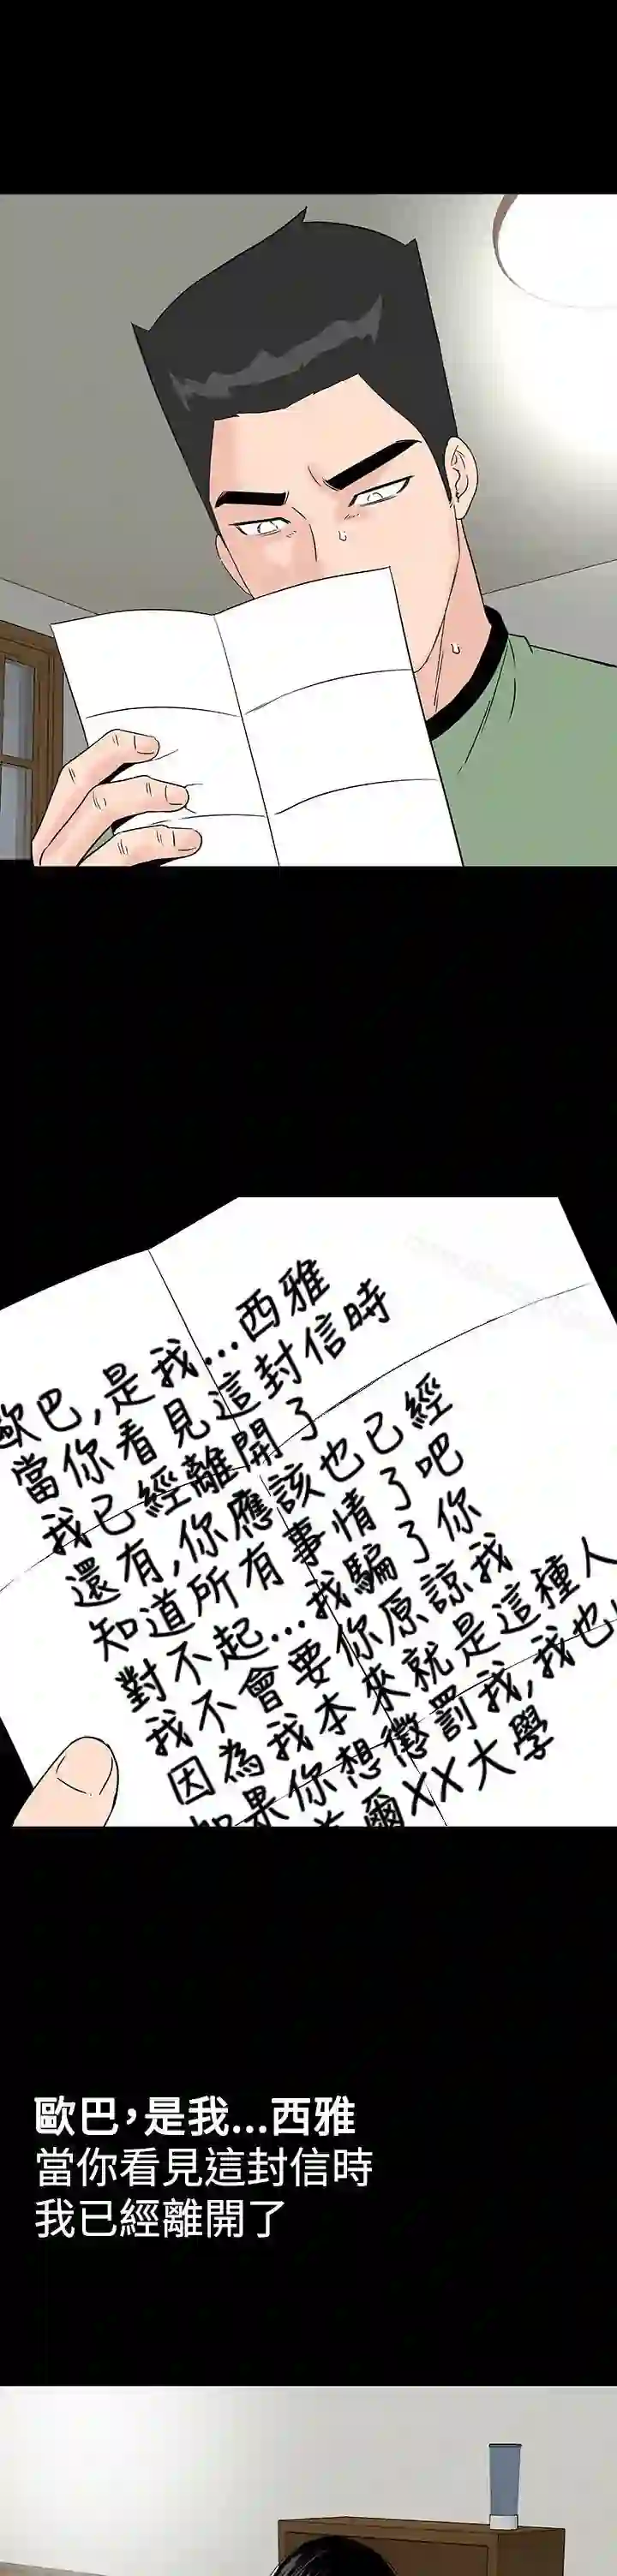 歐巴,是我...西雅
當你看見這封信時
我已經離開了
還有,你應該也已經
知道所有事情了吧
對不起...我騙了你
我不會要你原諒我
因為我本來就是這種人
如果你想懲罰我,我也
爾XX大學
歐巴,是我...西雅
當你看見這封信時
我已經離開了